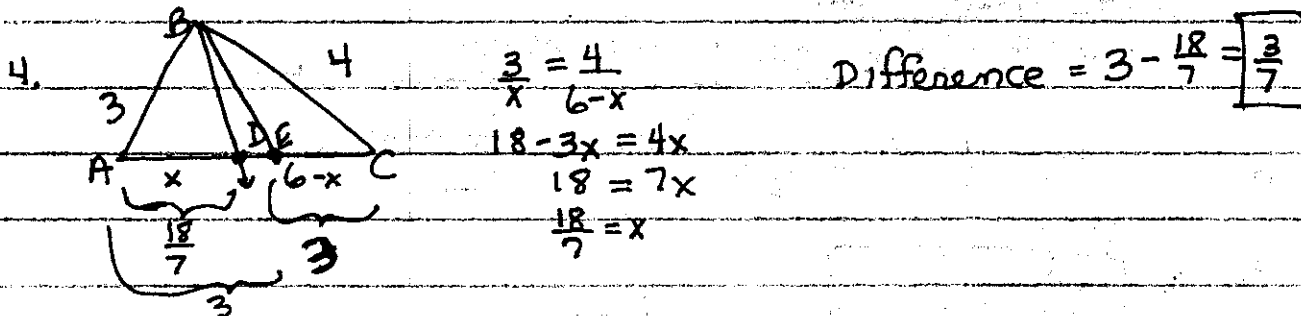 4.
B
3
4
A
x
D
E
6-x
C
18/7
3
3
3/x = 4/6-x
18-3x = 4x
18 = 7x
18/7 = x
Difference = 3 - 18/7 = 3/7